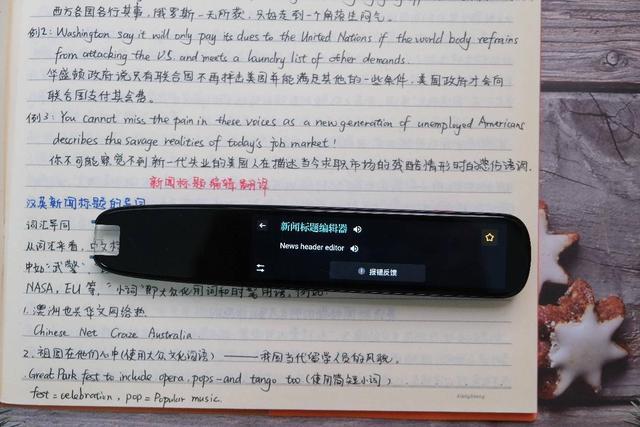 西方各国各行其事，俄罗斯一无所获，只好走到一个角落生闷气。
例2: Washington say it will only pay its dues to the United Nations if the world body refrains
from attacking the U.S. and meets a laundry list of other demands.
华盛顿政府说只有联合国不再抨击美国并能满足其他的一些条件，美国政府才会向
联合国支付其会费。
例3: You cannot miss the pain in these voices as a new generation of unemployed Americans
describes the savage realities of today's job market!
你不可能察觉不到新一代失业的美国人在描述当今求职市场的残酷情形时的悲伤语调.
新闻标题编辑翻译
汉英新闻标题的异同
词汇异同
新闻标题编辑器
从词汇来看，
News header editor
中如"武警"，
报错反馈
NASA, EU 等，"小词"即大众化用词和时髦用语，
1. 澳洲也关华文网络热
Chinese Net Craze Australia
2. 祖国在他们心中(使用大众文化词语) —— 我国当代留学人员的风貌。
Great Park fest to include opera, pops-and tango too (使用简短小词)
fest = celebration, pop = Popular music.